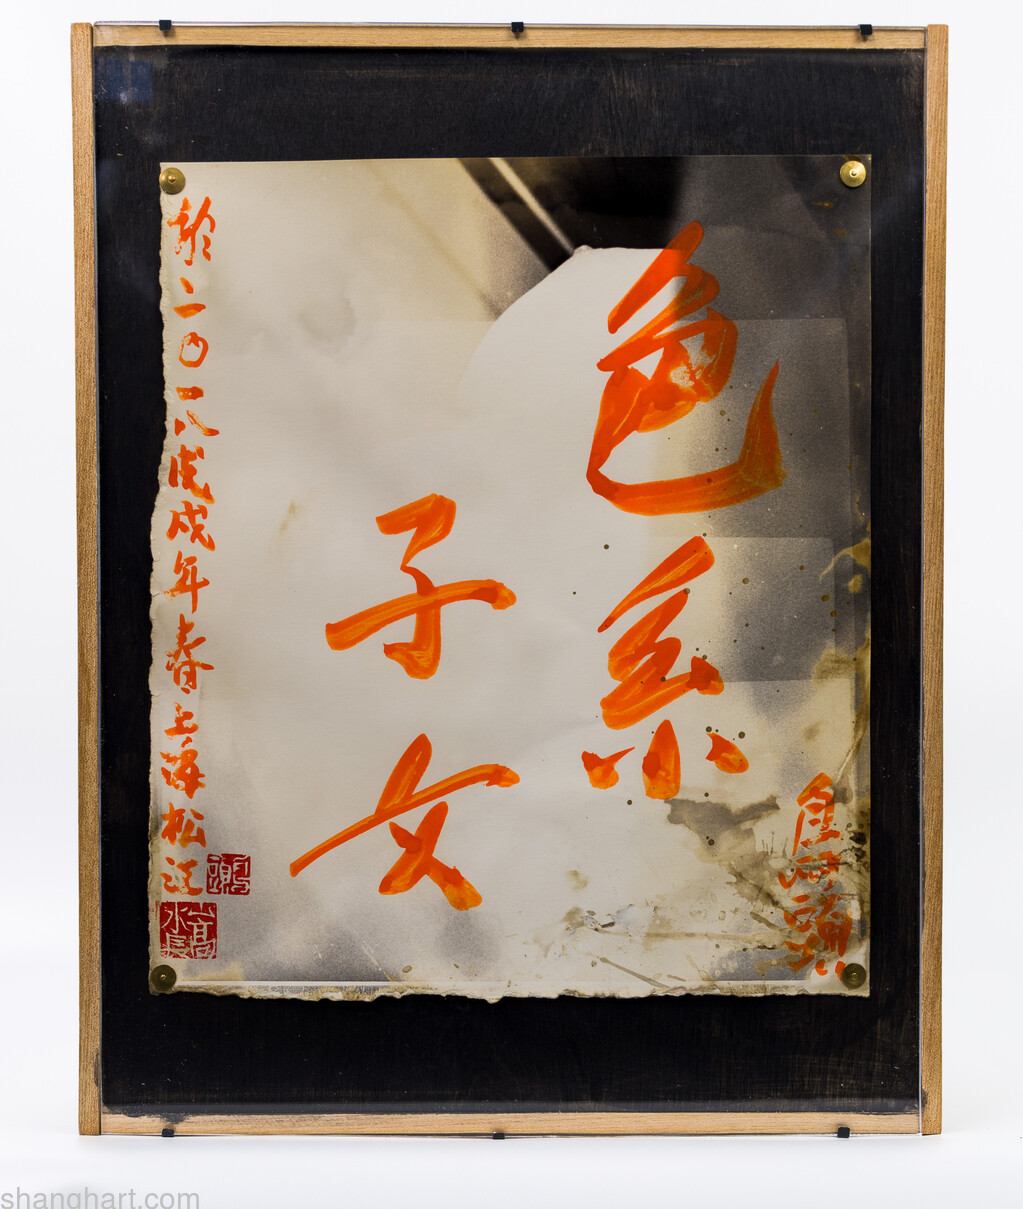 色系
子女
於二〇一八戊戌年春上海松江
鳥頭
山高水長
shanghart.com